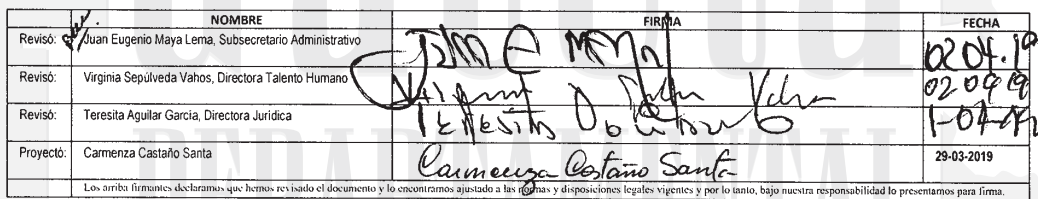 NOMBRE FIRMA FECHA
Revisó: Juan Eugenio Maya Lema, Subsecretario Administrativo 02.04.19
Revisó: Virginia Sepúlveda Vahos, Directora Talento Humano 02 04 19
Revisó: Teresita Aguilar García, Directora Jurídica
Proyectó: Carmenza Castaño Santa Carmenza Castaño Santa 29-03-2019
Los arriba firmantes declaramos que hemos revisado el documento y lo encontramos ajustado a las normas y disposiciones legales vigentes y por lo tanto, bajo nuestra responsabilidad lo presentamos para firma.